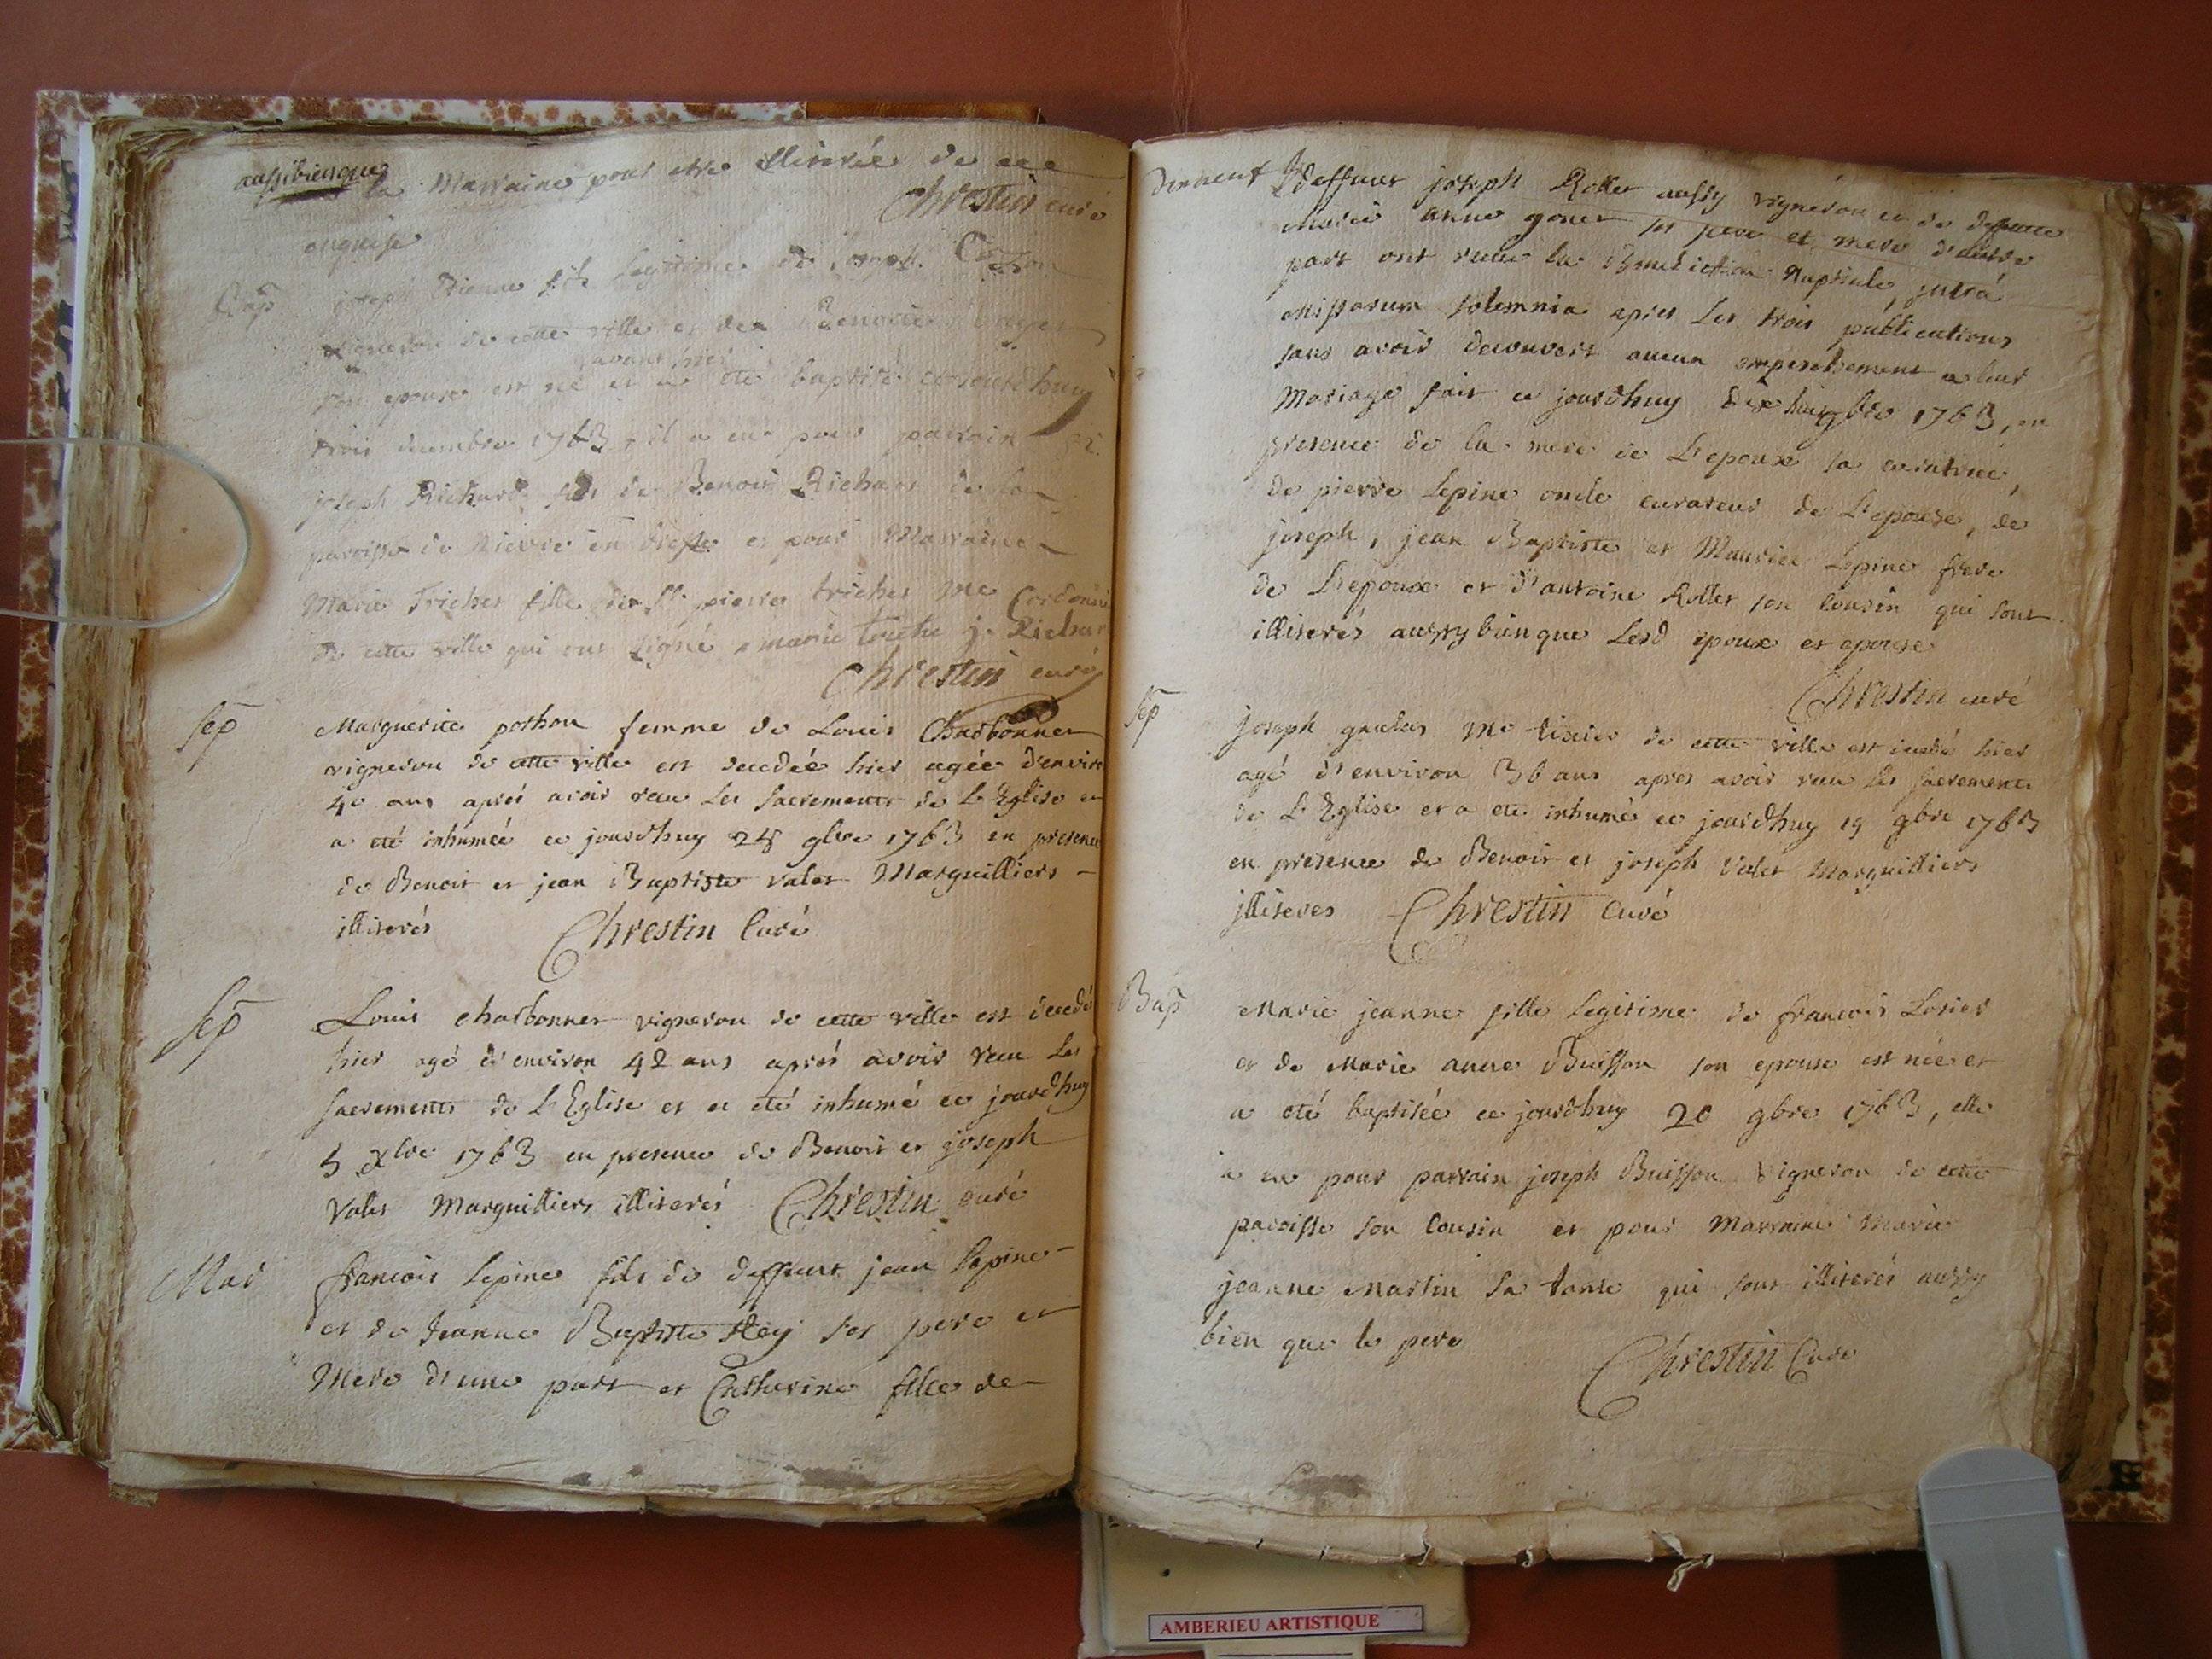 aussibienque la Marraine pour etre illiterée de ce
enquise Chrestin curé
Bap joseph Etienne fils legitime de joseph
vigneron de cette ville et de Benoite
avant hier
son epouse est né et a eté baptisé cejourdhuy
trois decembre 1763, il a eu pour parrain
joseph Richard fils de Benoit Richard de la
paroisse de en bresse et pour Marraine
Marie Trichet fille de Sr. pierre trichet Me Cordonnier
de cette ville qui ont signé marie triche j. Richar
Chrestin curé
Sep Marguerite pothon femme de Louis Charbonnet
vigneron de cette ville est decedée hier agée d'environ
40 ans aprés avoir reeu les sacrements de L'Eglise et
a eté inhumée ce jourdhuy 28 9bre 1763 en presence
de Benoit et jean Baptiste valet Marguilliers
illiterés Chrestin Curé
Sep Louis charbonnet vigneron de cette ville est decedé
hier agé d'environ 42 ans aprés avoir reeu les
sacrements de L'Eglise et a eté inhumé ce jourdhuy
5 Xbre 1763 en presence de Benoit et joseph
Valet Marguilliers illiterés Chrestin curé
Mar francois Lepine fils de deffunt jean Lapine
et de Jeanne Baptiste Rey ses pere et
Mere d'une part et Catherine fille de
deffunt joseph Rollet aussy vigneron et de deffunte
Marie anne gonet ses pere et mere d'autre
part ont reeu la Benediction Nuptiale, jnterá
Missarum solemnia apres Les trois publications
sans avoir decouvert aucun empeschement a leur
Mariage fait ce jourdhuy dix huit 9bre 1763, en
presence de la mere de L'epoux sa curatrice,
de pierre Lepine oncle curateur de L'epouse, de
joseph, jean Baptiste et Maurice Lepine frere
de L'epoux et d'antoine Rollet son cousin qui sont
illiterés aussy bien que Lesd epoux et epouse
Chrestin curé
Sep joseph Me tixier de cette ville est decedé hier
agé d'environ 36 ans apres avoir reeu les sacrements
de L'Eglise et a eté inhumé ce jourdhuy 19 9bre 1763
en presence de Benoit et joseph Valet Marguilliers
jlliterés Chrestin Curé
Bap Marie jeanne fille legitime de francois Losier
et de Marie anne Buisson son epouse est née et
a eté baptisée ce jourdhuy 20 9bre 1763, elle
a eu pour parrain joseph Buisson vigneron de cette
paroisse son Cousin et pour Marraine Marie
jeanne Martin sa tante qui sont illiterés aussy
bien que le pere Chrestin Curé
AMBERIEU ARTISTIQUE